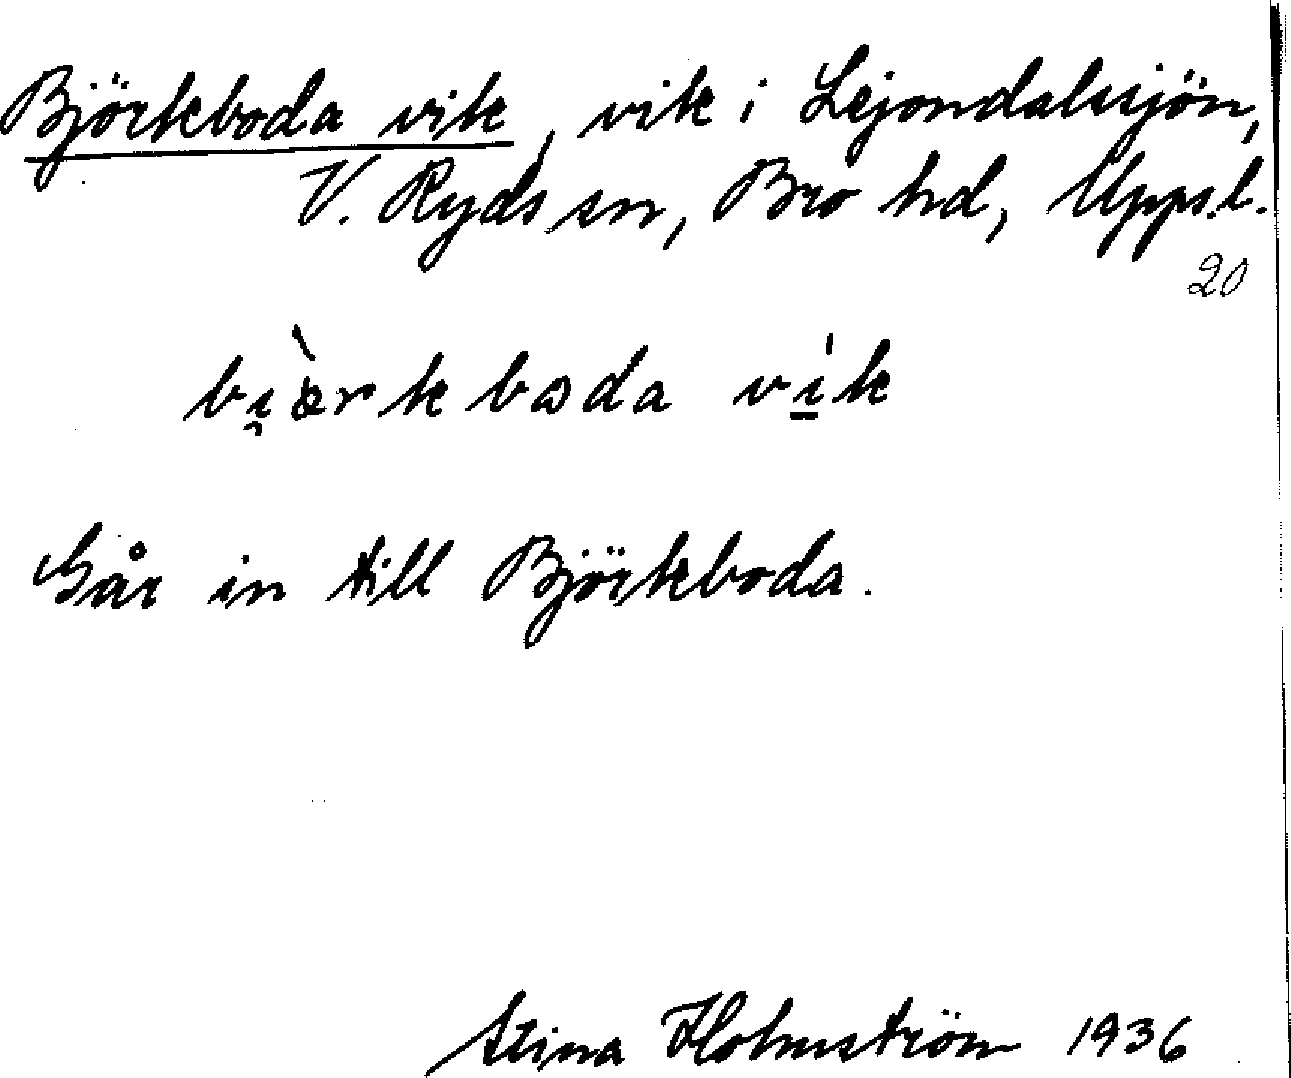 Björkboda vik, vik i Lejondalssjön,
V. Ryds sn, Bro hd, Uppsl.
20
bi̯æ̀rkboda vík
Går in till Björkboda.
Stina Holmström 1936